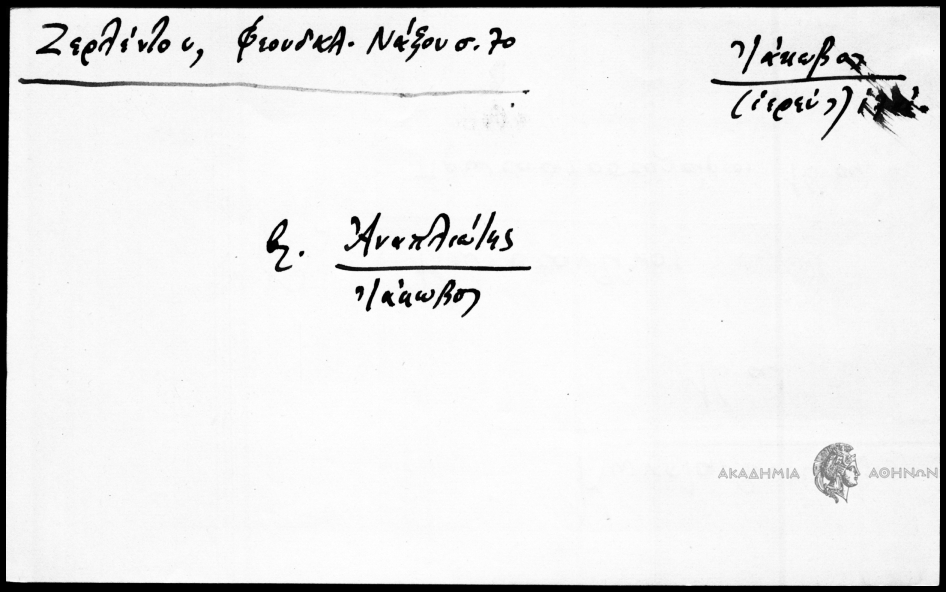 Ζερλέντου, Φεουδαλ. Νάξου σ. 70
Ἰάκωβος
(ἱερεύς)
β. Ἀναπλιώτης
Ἰάκωβος
ΑΚΑΔΗΜΙΑ ΑΘΗΝΩΝ